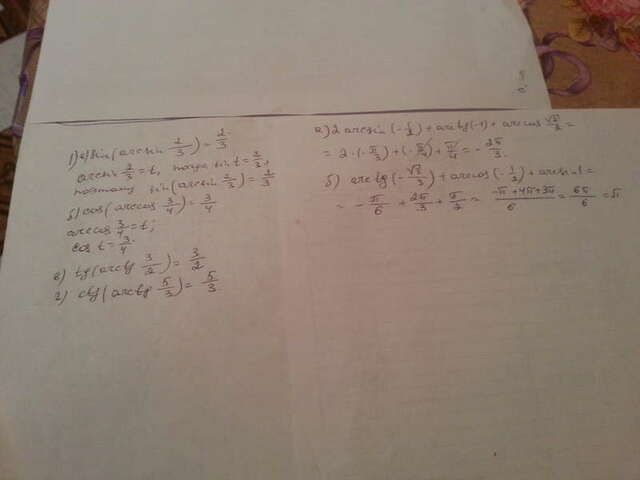 1) а) sin(arcsin 2/3) = 2/3.
arcsin 2/3 = t, тогда sin t = 2/3,
поэтому sin(arcsin 2/3) = 2/3
б) cos(arccos 3/4) = 3/4
arccos 3/4 = t;
cos t = 3/4.
в) tg(arctg 3/2) = 3/2
г) ctg(arcctg 5/3) = 5/3
а) 2 arcsin(-
) + arctg(-1) + arccos √2/2 =
= 2·(-π/3) + (-π/4) + π/4 = -2π/3.
б) arctg(-√3/3) + arccos(-1/2) + arcsin 1 =
= -π/6 + 2π/3 + π/2 = (-π+4π+3π)/6 = 6π/6 = π